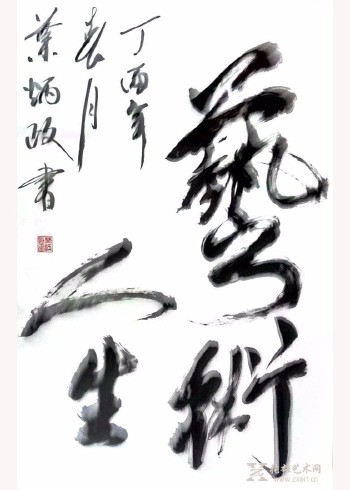 藝術
人生
丁酉年
春月
葉炳政書
www.zxart.cn